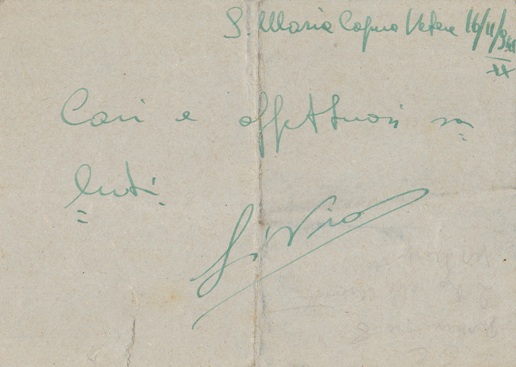 S. Maria Capua Vetere 16/11/941
XX
Cari e affettuosi sa=
luti.
Silvio